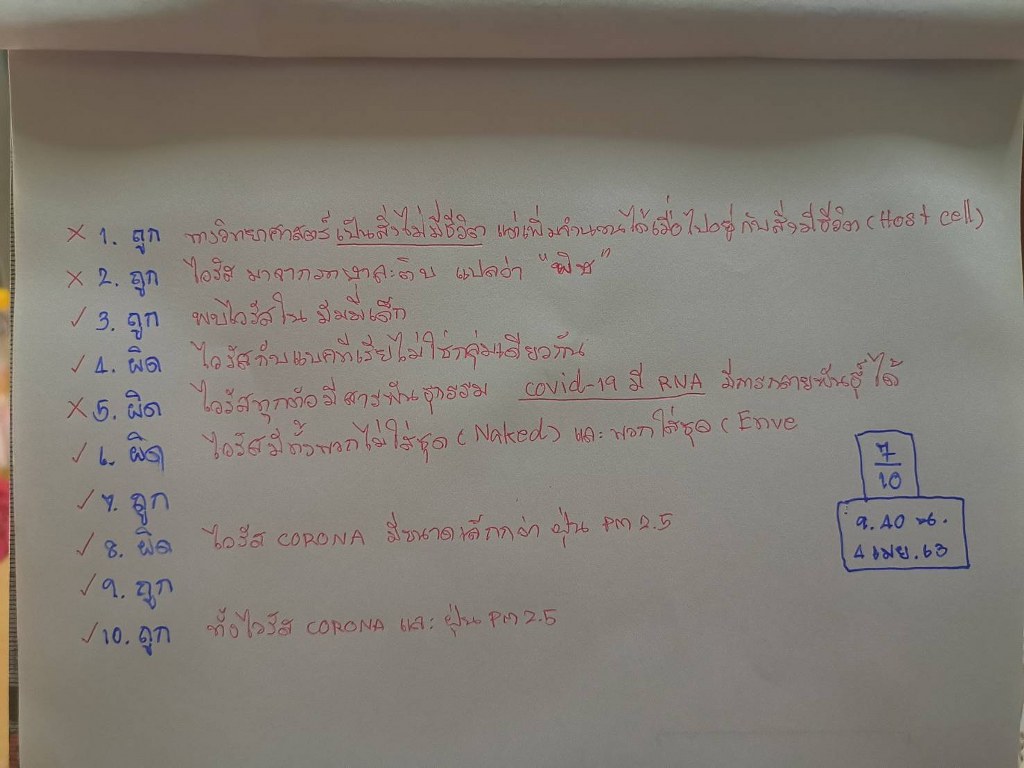 × 1. ถูก ทางวิทยาศาสตร์ เป็นสิ่งไม่มีชีวิต แต่เพิ่มจำนวนได้เมื่อไปอยู่กับสิ่งมีชีวิต (Host cell)
× 2. ถูก ไวรัส มาจากภาษาละติน แปลว่า "พิษ"
✓ 3. ถูก พบไวรัสใน มัมมี่เด็ก
✓ 4. ผิด ไวรัสกับแบคทีเรียไม่ใช่กลุ่มเดียวกัน
× 5. ผิด ไวรัสทุกตัวมีสารพันธุกรรม covid-19 มี RNA มีการกลายพันธุ์ได้
✓ 6. ผิด ไวรัสมีทั้งพวกไม่ใส่ชุด (Naked) และพวกใส่ชุด (Enve
✓ 7. ถูก
✓ 8. ผิด ไวรัส CORONA มีขนาดเล็กกว่า ฝุ่น PM 2.5
✓ 9. ถูก
✓ 10. ถูก ทั้งไวรัส CORONA และ ฝุ่น PM 2.5
7
10
9.40 น.
4 เมย. 63